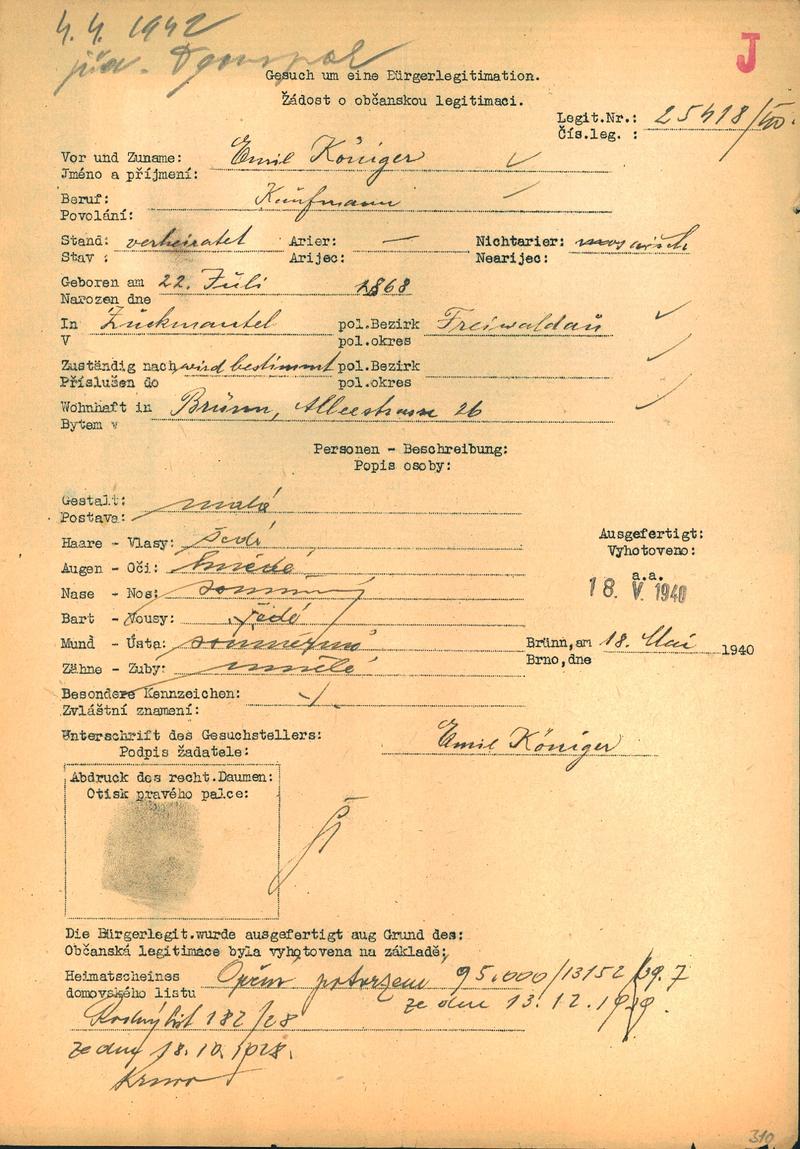 4. 4. 1942
J
žid. transport
Gesuch um eine Bürgerlegitimation.
Žádost o občanskou legitimaci.
Legit.Nr.: 25418/40.
Čís.leg. :
Vor und Zuname: Emil Königer
Jméno a příjmení:
Beruf: Kaufmann
Povolání:
Stand: verheiratet Arier: — Nichtarier: mosaisch
Stav : Arijec: Nearijec:
Geboren am 22. Juli 1868
Narozen dne
In Zuckmantel pol.Bezirk Freiwaldau
V pol.okres
Zuständig nach wird bestimmt pol.Bezirk
Příslušen do pol.okres
Wohnhaft in Brünn, Alleestrasse 26
Bytem v
Personen - Beschreibung:
Popis osoby:
Gestalt: malá
Postava:
Haare - Vlasy: šedé
Augen - Oči: hnědé
Nase - Nos: souměrný
Bart - Vousy: šedé
Mund - Ústa: souměrná
Zähne - Zuby: umělé
Besondere Kennzeichen:
Zvláštní znamení:
Ausgefertigt:
Vyhotoveno:
a.a.
18. V. 1940
Brünn,am 18. Mai 1940
Brno,dne
Unterschrift des Gesuchstellers: Emil Königer
Podpis žadatele:
Abdruck des recht.Daumen:
Otisk pravého palce:
Die Bürgerlegit.wurde ausgefertigt aug Grund des:
Občanská legitimace byla vyhotovena na základě:
Heimatscheines potvrzení 95.000/13152/39.7
domovského listu ze dne 13.12.1939.
Rodný list 182/28
ze dne 18.10.1928.
310